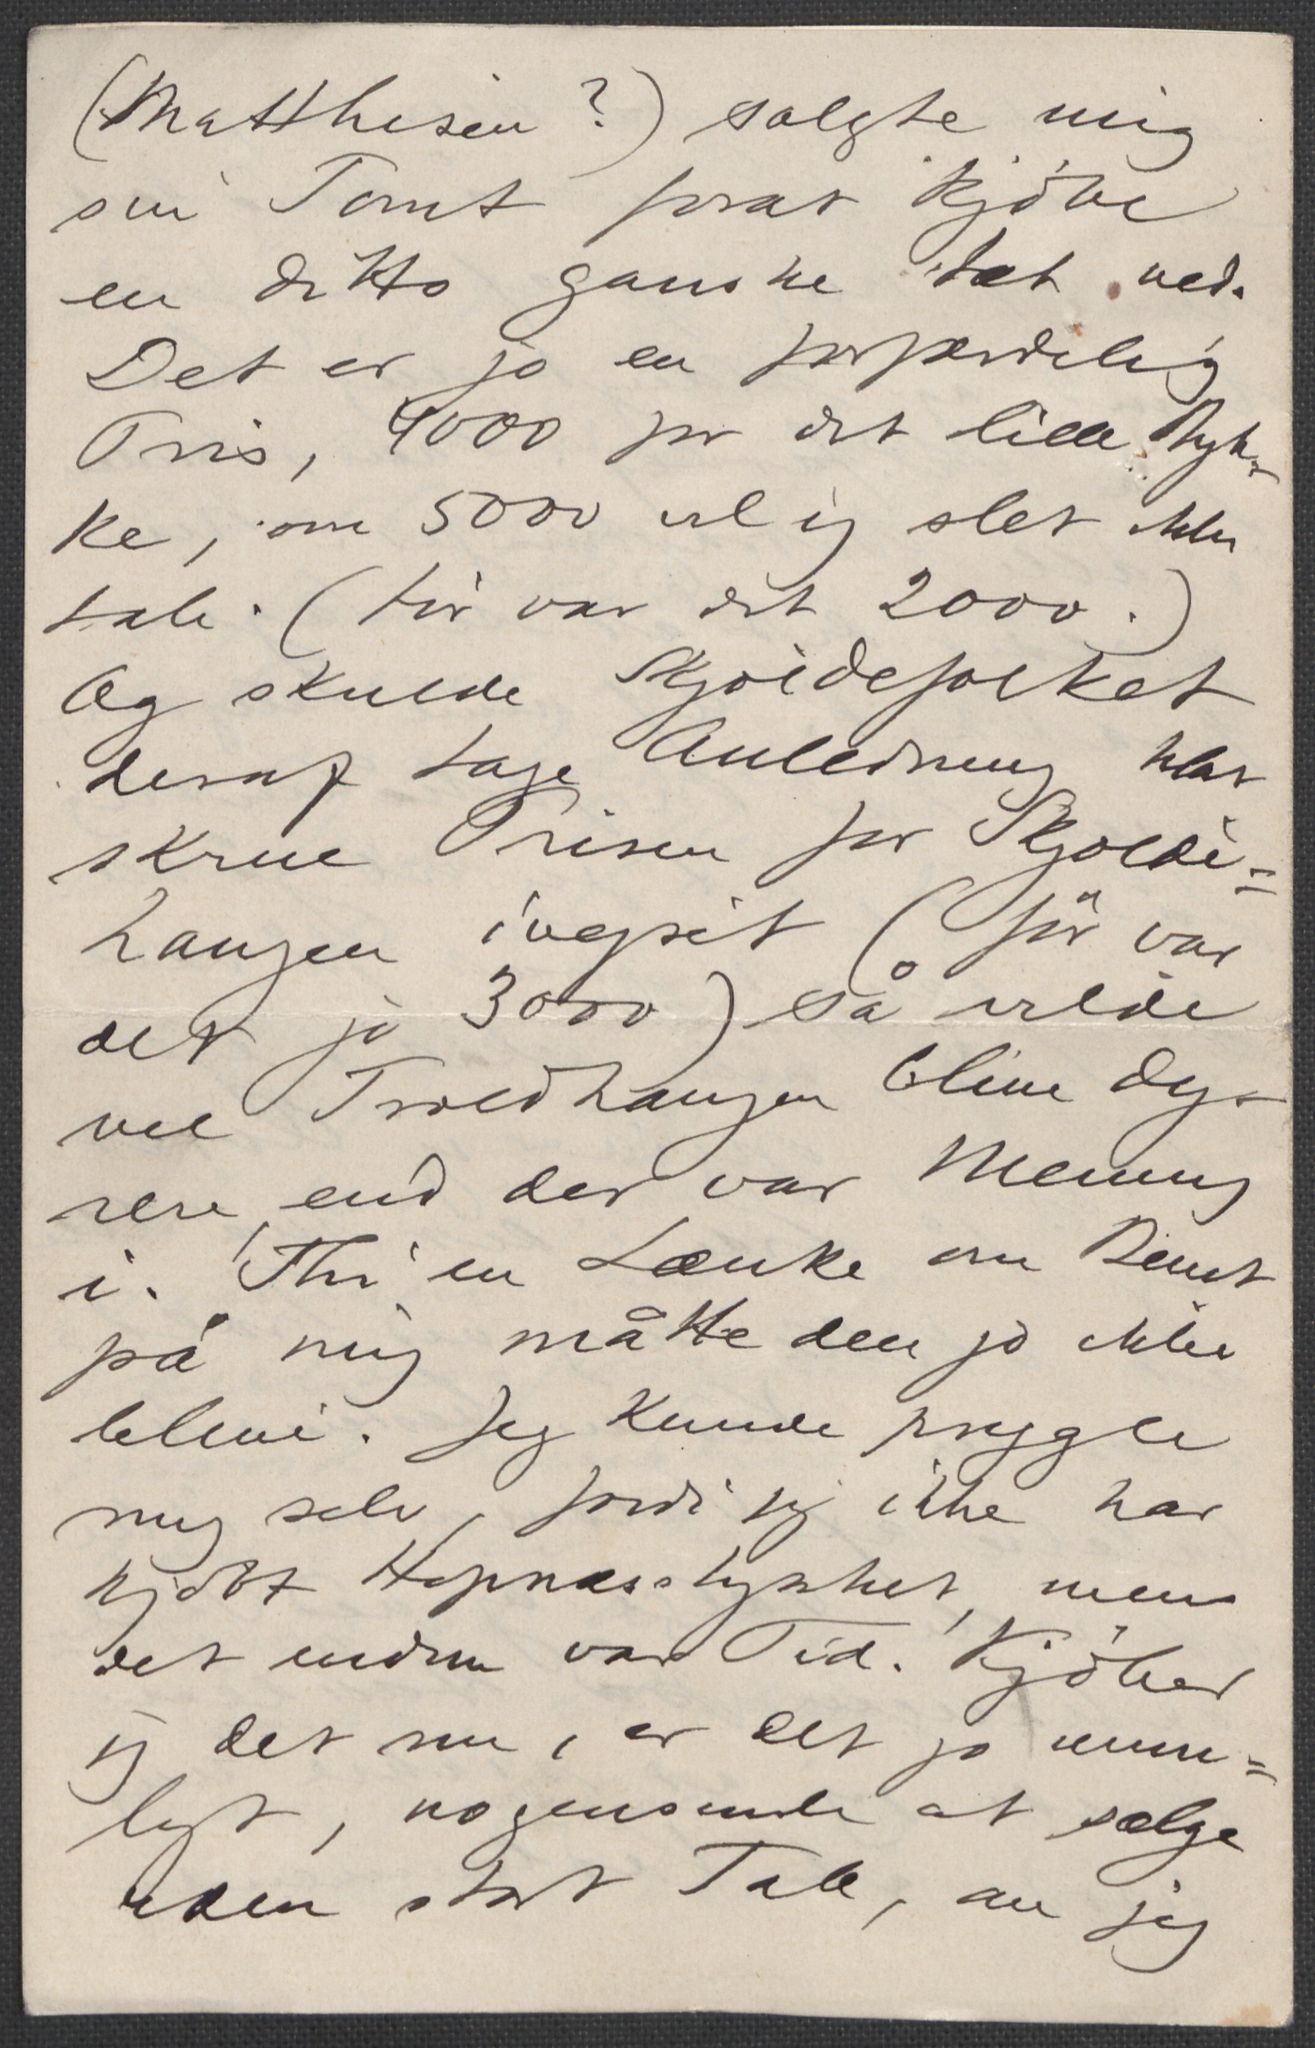 (Matthiesen?) solgte mig
sin Tomt forat kjöbe
en ditto ganske tæt ved.
Det er jo en forfærdelig
Pris, 4000 for det lille Styk-
ke, om 5000 vil jeg slet ikke
tale. (för var det 2000.)
Og skulde Skjoldefolket
deraf tage Anledning til at
skrue Prisen for Skjolde=
haugen ivejret (för var
det jo 3000) så vilde
vel Troldhaugen blive dy-
rere, end der var Mening
i. Thi en Lænke om Benet
på mig måtte den jo ikke
blive. Jeg kunde prygle
mig selv, fordi jeg ikke har
kjöbt Hopnæsstykket, mens
det endnu var Tid. Kjöber
jeg det nu, er det jo umu=
ligt, nogensinde at sælge
uden stort Tab, om jeg